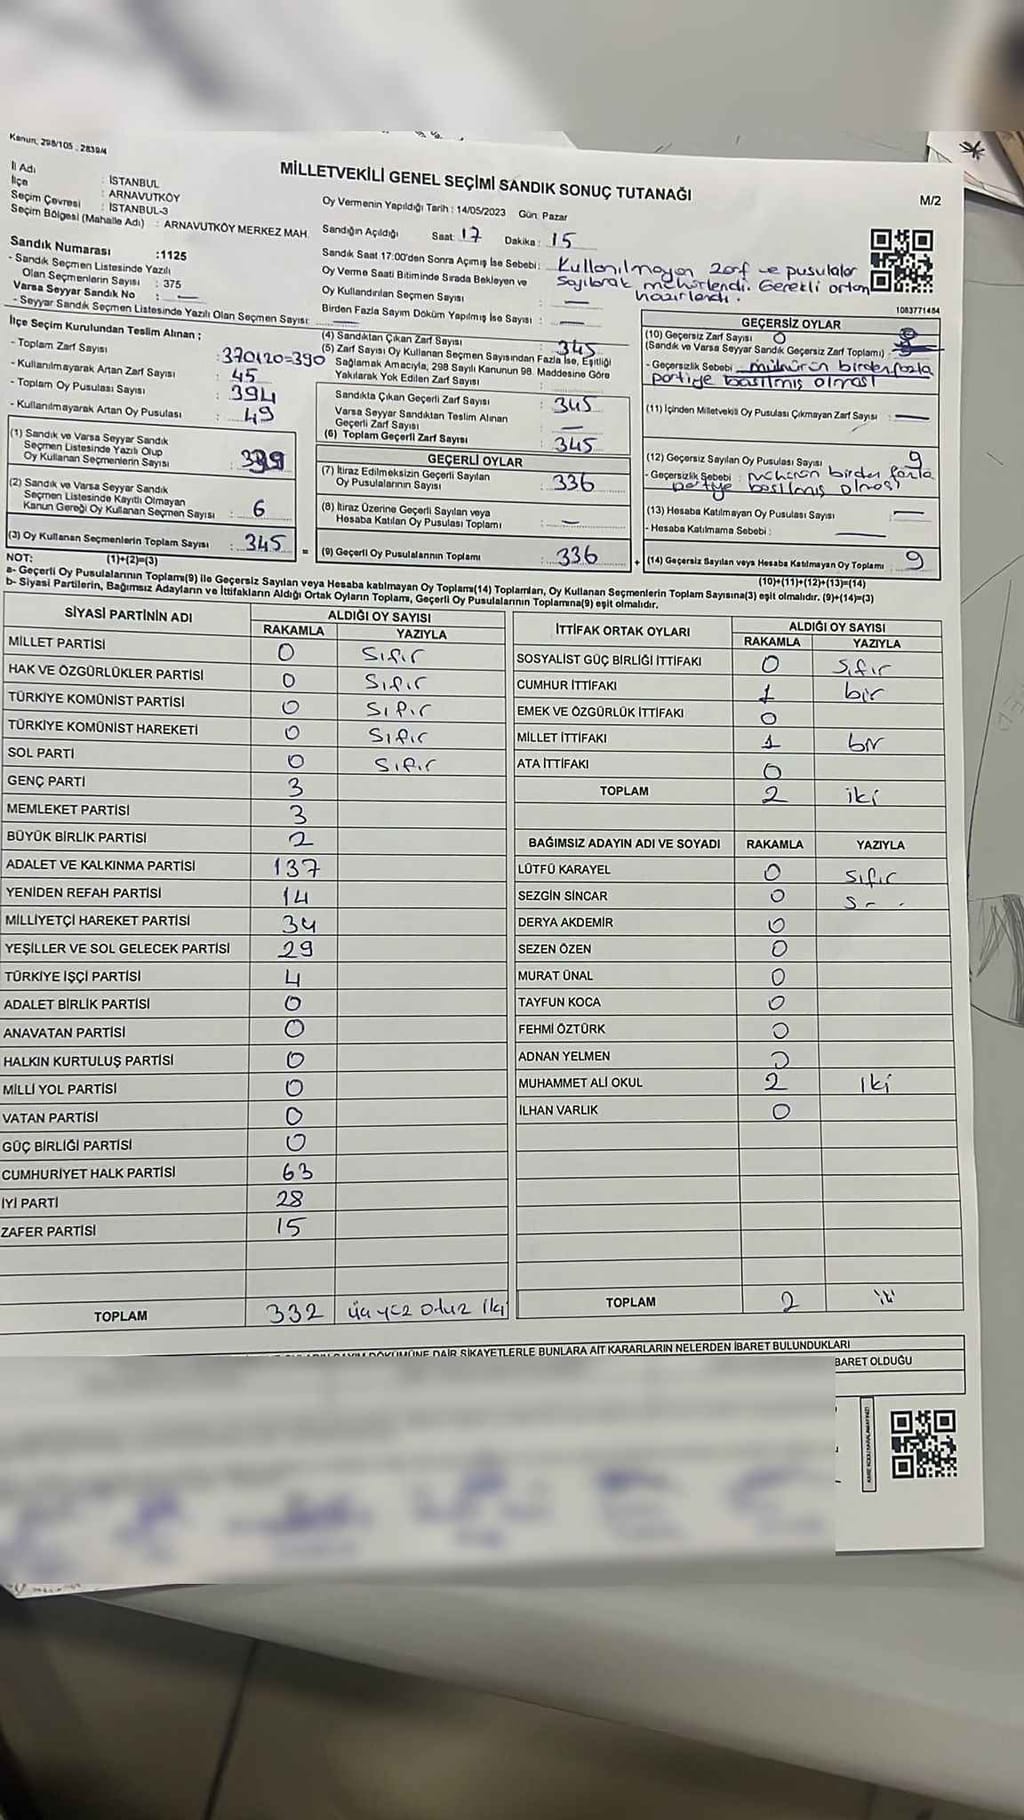 Kanun; 298/105 , 2839/4
MİLLETVEKİLİ GENEL SEÇİMİ SANDIK SONUÇ TUTANAĞI
M/2
İl Adı : İSTANBUL
İlçe : ARNAVUTKÖY
Seçim Çevresi : İSTANBUL-3
Seçim Bölgesi (Mahalle Adı) : ARNAVUTKÖY MERKEZ MAH.
Oy Vermenin Yapıldığı Tarih : 14/05/2023 Gün: Pazar
Sandığın Açıldığı Saat: 17 Dakika : 15
Sandık Saat 17:00'den Sonra Açımış İse Sebebi: Kullanılmayan zarf ve pusulalar
Oy Verme Saati Bitiminde Sırada Bekleyen ve sayılarak mühürlendi. Gerekli ortam
Oy Kullandırılan Seçmen Sayısı : — hazırlandı.
Birden Fazla Sayım Döküm Yapılmış İse Sayısı : —
1083771484
Sandık Numarası :1125
- Sandık Seçmen Listesinde Yazılı
Olan Seçmenlerin Sayısı : 375
Varsa Seyyar Sandık No : —
- Seyyar Sandık Seçmen Listesinde Yazılı Olan Seçmen Sayısı: —
İlçe Seçim Kurulundan Teslim Alınan ;
- Toplam Zarf Sayısı : 370+20=390
- Kullanılmayarak Artan Zarf Sayısı : 45
- Toplam Oy Pusulası Sayısı : 394
- Kullanılmayarak Artan Oy Pusulası : 49
(1) Sandık ve Varsa Seyyar Sandık
Seçmen Listesinde Yazılı Olup
Oy Kullanan Seçmenlerin Sayısı : 339
(2) Sandık ve Varsa Seyyar Sandık
Seçmen Listesinde Kayıtlı Olmayan
Kanun Gereği Oy Kullanan Seçmen Sayısı : 6
(3) Oy Kullanan Seçmenlerin Toplam Sayısı : 345
(1)+(2)=(3)
(4) Sandıktan Çıkan Zarf Sayısı : 345
(5) Zarf Sayısı Oy Kullanan Seçmen Sayısından Fazla İse, Eşitliği
Sağlamak Amacıyla, 298 Sayılı Kanunun 98. Maddesine Göre
Yakılarak Yok Edilen Zarf Sayısı :
Sandıkta Çıkan Geçerli Zarf Sayısı : 345
Varsa Seyyar Sandıktan Teslim Alınan
Geçerli Zarf Sayısı : —
(6) Toplam Geçerli Zarf Sayısı : 345
GEÇERLİ OYLAR
(7) İtiraz Edilmeksizin Geçerli Sayılan
Oy Pusulalarının Sayısı : 336
(8) İtiraz Üzerine Geçerli Sayılan veya
Hesaba Katılan Oy Pusulası Toplamı : —
= (9) Geçerli Oy Pusulalarının Toplamı : 336
GEÇERSİZ OYLAR
(10) Geçersiz Zarf Sayısı : 0
(Sandık ve Varsa Seyyar Sandık Geçersiz Zarf Toplamı) :
- Geçersizlik Sebebi : mührün birden fazla
partiye basılmış olması
(11) İçinden Milletvekili Oy Pusulası Çıkmayan Zarf Sayısı : —
(12) Geçersiz Sayılan Oy Pusulası Sayısı : 9
- Geçersizlik Sebebi : mührün birden fazla
partiye basılmış olması
(13) Hesaba Katılmayan Oy Pusulası Sayısı : —
- Hesaba Katılmama Sebebi : —
+ (14) Geçersiz Sayılan veya Hesaba Katılmayan Oy Toplamı : 9
(10)+(11)+(12)+(13)=(14)
NOT:
a- Geçerli Oy Pusulalarının Toplamı(9) ile Geçersiz Sayılan veya Hesaba katılmayan Oy Toplamı(14) Toplamları, Oy Kullanan Seçmenlerin Toplam Sayısına(3) eşit olmalıdır. (9)+(14)=(3)
b- Siyasi Partilerin, Bağımsız Adayların ve İttifakların Aldığı Ortak Oyların Toplamı, Geçerli Oy Pusulalarının Toplamına(9) eşit olmalıdır.
SİYASİ PARTİNİN ADI ALDIĞI OY SAYISI
RAKAMLA YAZIYLA
MİLLET PARTİSİ 0 Sıfır
HAK VE ÖZGÜRLÜKLER PARTİSİ 0 Sıfır
TÜRKİYE KOMÜNİST PARTİSİ 0 Sıfır
TÜRKİYE KOMÜNİST HAREKETİ 0 Sıfır
SOL PARTİ 0 Sıfır
GENÇ PARTİ 3
MEMLEKET PARTİSİ 3
BÜYÜK BİRLİK PARTİSİ 2
ADALET VE KALKINMA PARTİSİ 137
YENİDEN REFAH PARTİSİ 14
MİLLİYETÇİ HAREKET PARTİSİ 34
YEŞİLLER VE SOL GELECEK PARTİSİ 29
TÜRKİYE İŞÇİ PARTİSİ 4
ADALET BİRLİK PARTİSİ 0
ANAVATAN PARTİSİ 0
HALKIN KURTULUŞ PARTİSİ 0
MİLLİ YOL PARTİSİ 0
VATAN PARTİSİ 0
GÜÇ BİRLİĞİ PARTİSİ 0
CUMHURİYET HALK PARTİSİ 63
İYİ PARTİ 28
ZAFER PARTİSİ 15
TOPLAM 332 üç yüz otuz iki
İTTİFAK ORTAK OYLARI ALDIĞI OY SAYISI
RAKAMLA YAZIYLA
SOSYALİST GÜÇ BİRLİĞİ İTTİFAKI 0 sıfır
CUMHUR İTTİFAKI 1 bir
EMEK VE ÖZGÜRLÜK İTTİFAKI 0
MİLLET İTTİFAKI 1 bir
ATA İTTİFAKI 0
TOPLAM 2 iki
BAĞIMSIZ ADAYIN ADI VE SOYADI RAKAMLA YAZIYLA
LÜTFÜ KARAYEL 0 Sıfır
SEZGİN SİNCAR 0 S - -
DERYA AKDEMİR 0
SEZEN ÖZEN 0
MURAT ÜNAL 0
TAYFUN KOCA 0
FEHMİ ÖZTÜRK 0
ADNAN YELMEN 0
MUHAMMET ALİ OKUL 2 iki
İLHAN VARLIK 0
TOPLAM 2 iki
DÖKÜMÜNE DAİR ŞİKAYETLERLE BUNLARA AİT KARARLARIN NELERDEN İBARET BULUNDUKLARI
BARET OLDUĞU